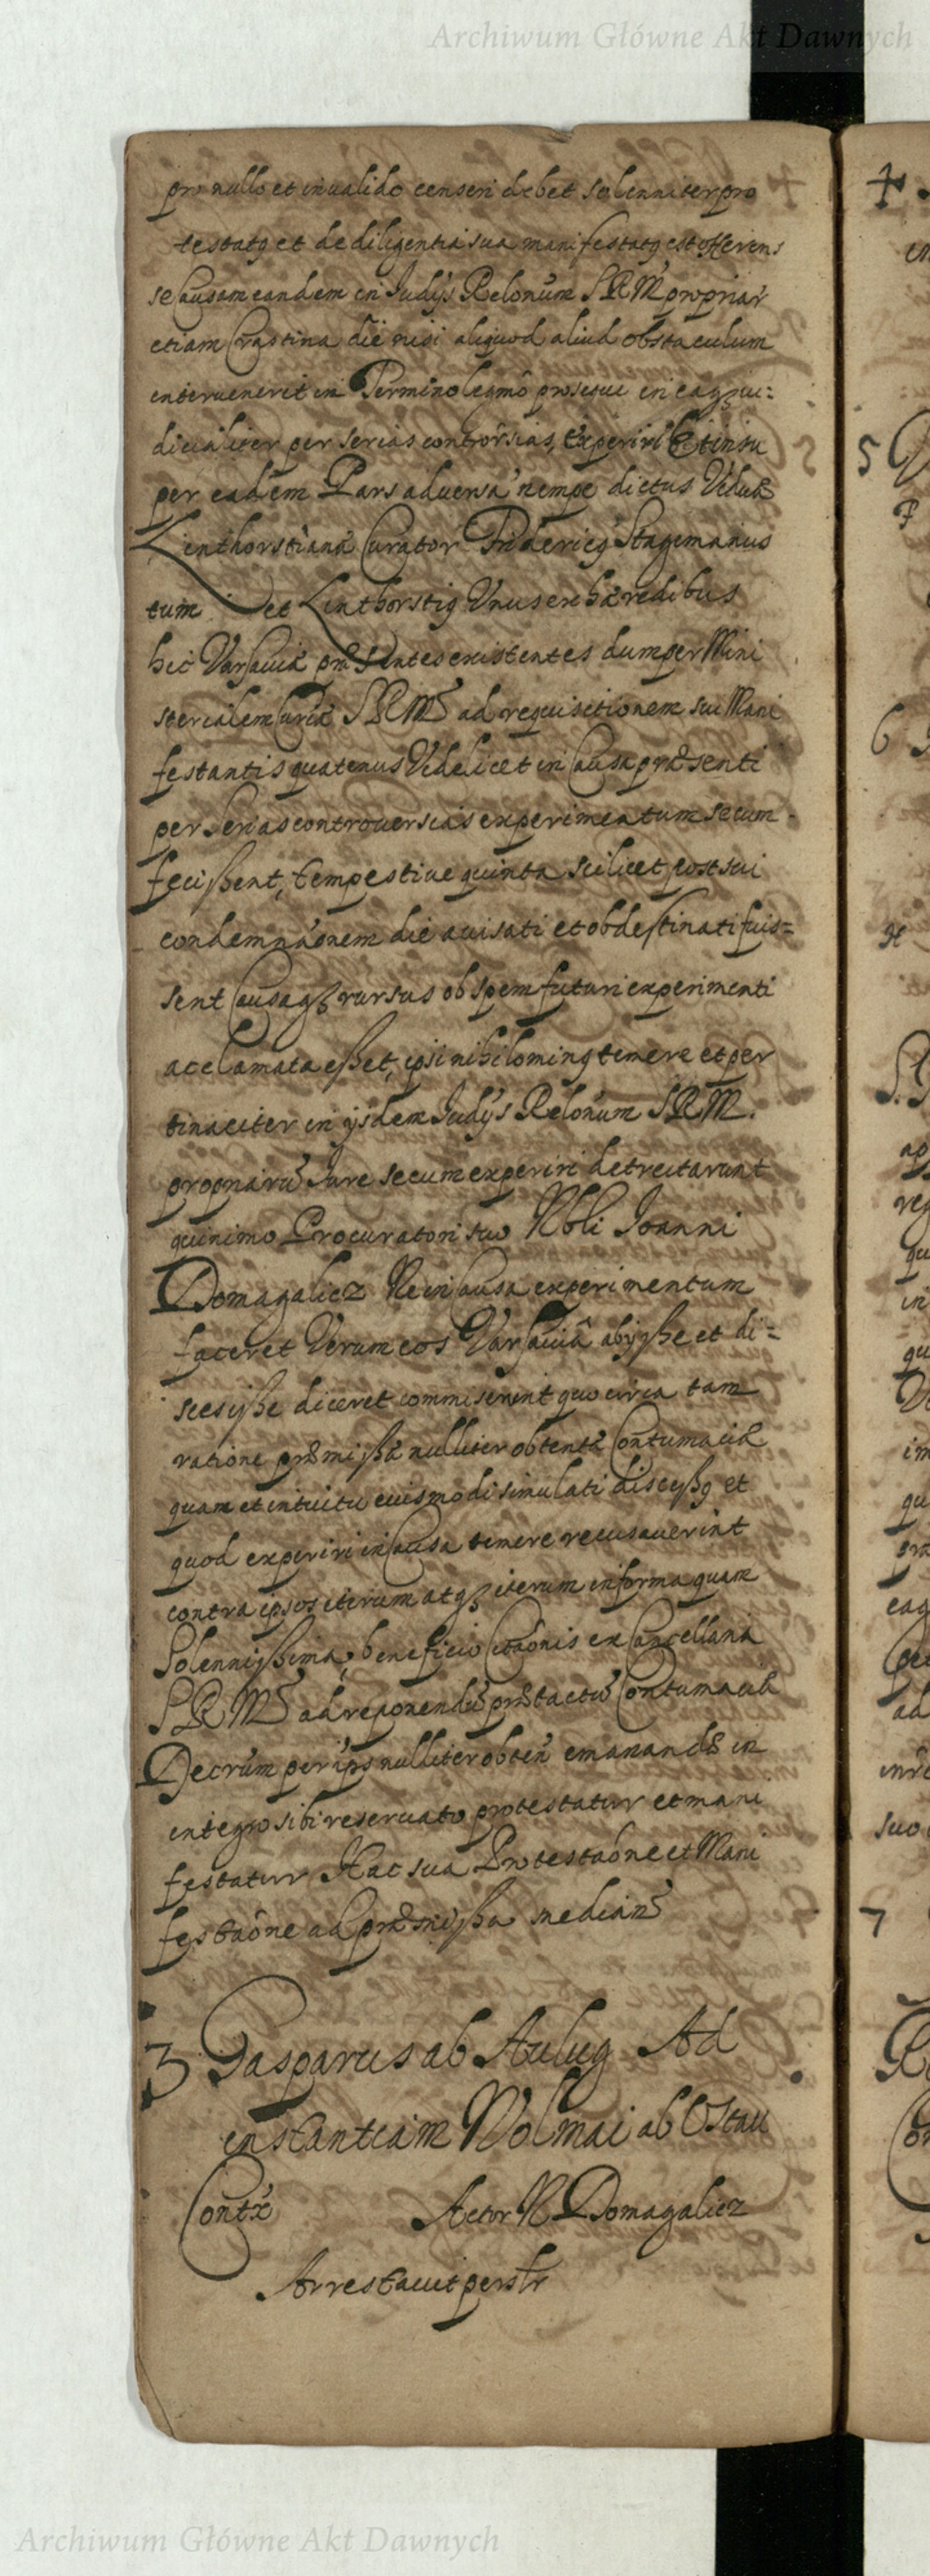 Archiwum Główne Akt Dawnych
pro nullo et inualido censeri debet solenniter pro
testatq et de diligentia sua manifestatq est offerens
se Causam eandem in Judijs Relonum S R M propriar
etiam Crastina die nisi aliquod aliud obstaculum
interuenerit in Termino legmo prosequi in eaqz iu:
dicialiter per serias controrsias, experiri Et insu
per eadem Pars aduersa nempe dictus Viduæ
Linthorstianæ Curator Fridericq Stagemanus
tum et Linthorstiq Unus ex hæredibus
hic Varsauiæ præsentes existentes dum per Mini
sterialem Curiæ S R M ad requisitionem sui Mani
festantis quatenus Videlicet in Causa præsenti
per Serias controuersias experimentum secum
fecissent, tempestiue quinta scilicet post sui
condemnaonem die auisati et obdestinati fuis=
sent Causaqz rursus ob spem futuri experimenti
acclamata esset, ipsi nihilominq temere et per
tinaciter in ijsdem Judijs Relonum S R M.
propriaru Jure secum experiri detrectarunt
quinimo Procuratori suo Nbli Joanni
Domagalicz Ne in Causa experimentum
faceret Verum eos Varsauiâ abijsse et di=
scessisse diceret commiserint quo circa tam
ratione præmissæ nulliter obtentæ Contumaciæ
quam et intuitu euismodi simulati discessq et
quod experiri in Causa temere recusauerint
contra ipsos iterum atqz iterum in forma quam
Solennissima, beneficio Citaonis ex Cancellaria
S R M ad reponendu prætactu Contumaciæ
Decrum per ipsos nulliter obten emanandæ in
integro sibi reseruato protestatur et mani
festatur Hac sua Protestaone et Mani
festaone ad præmissa median
3 Gasparus ab Ad
instantiam Wolmai ab Ostau
Contx Actor N Domagalicz
Arrestauit perstr
5
6
7
Archiwum Główne Akt Dawnych